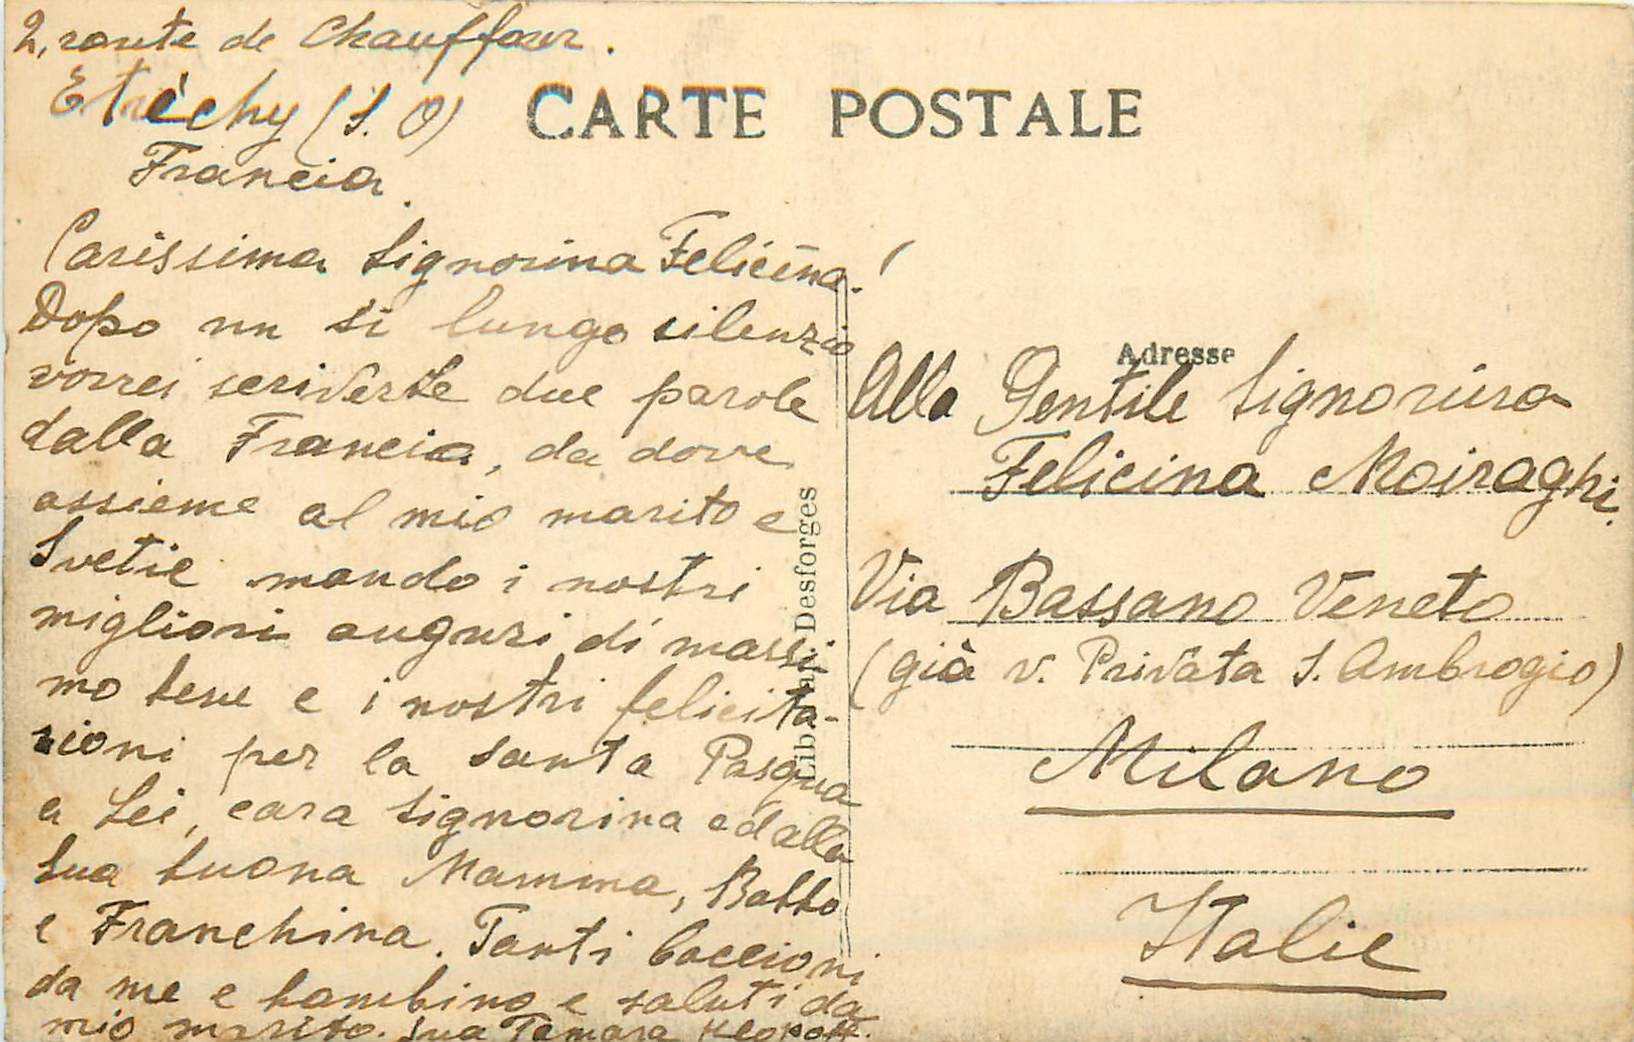 2, route de Chauffour.
Etréchy (S. O)
Francia.
CARTE POSTALE
Carissima Signorina Felicina!
Dopo un si lungo silenzio
vorrei scriverLe due parole
dalla Francia, da dove
assieme al mio marito e
Svetie mando i nostri
migliori auguri di massi
mo bene e i nostri felicita-
zioni per la Santa Pasqua
a Lei, cara Signorina ed alla
Sua buona Mamma, Babbo
e Franchina. Tanti baccioni
da me e bambino e saluti da
mio marito. Sua Tamara
Desforges
Adresse
Alla Gentile Signorina
Felicina Moiraghi.
Via Bassano Veneto
(già v. Privata S. Ambrogio)
Milano
Italie